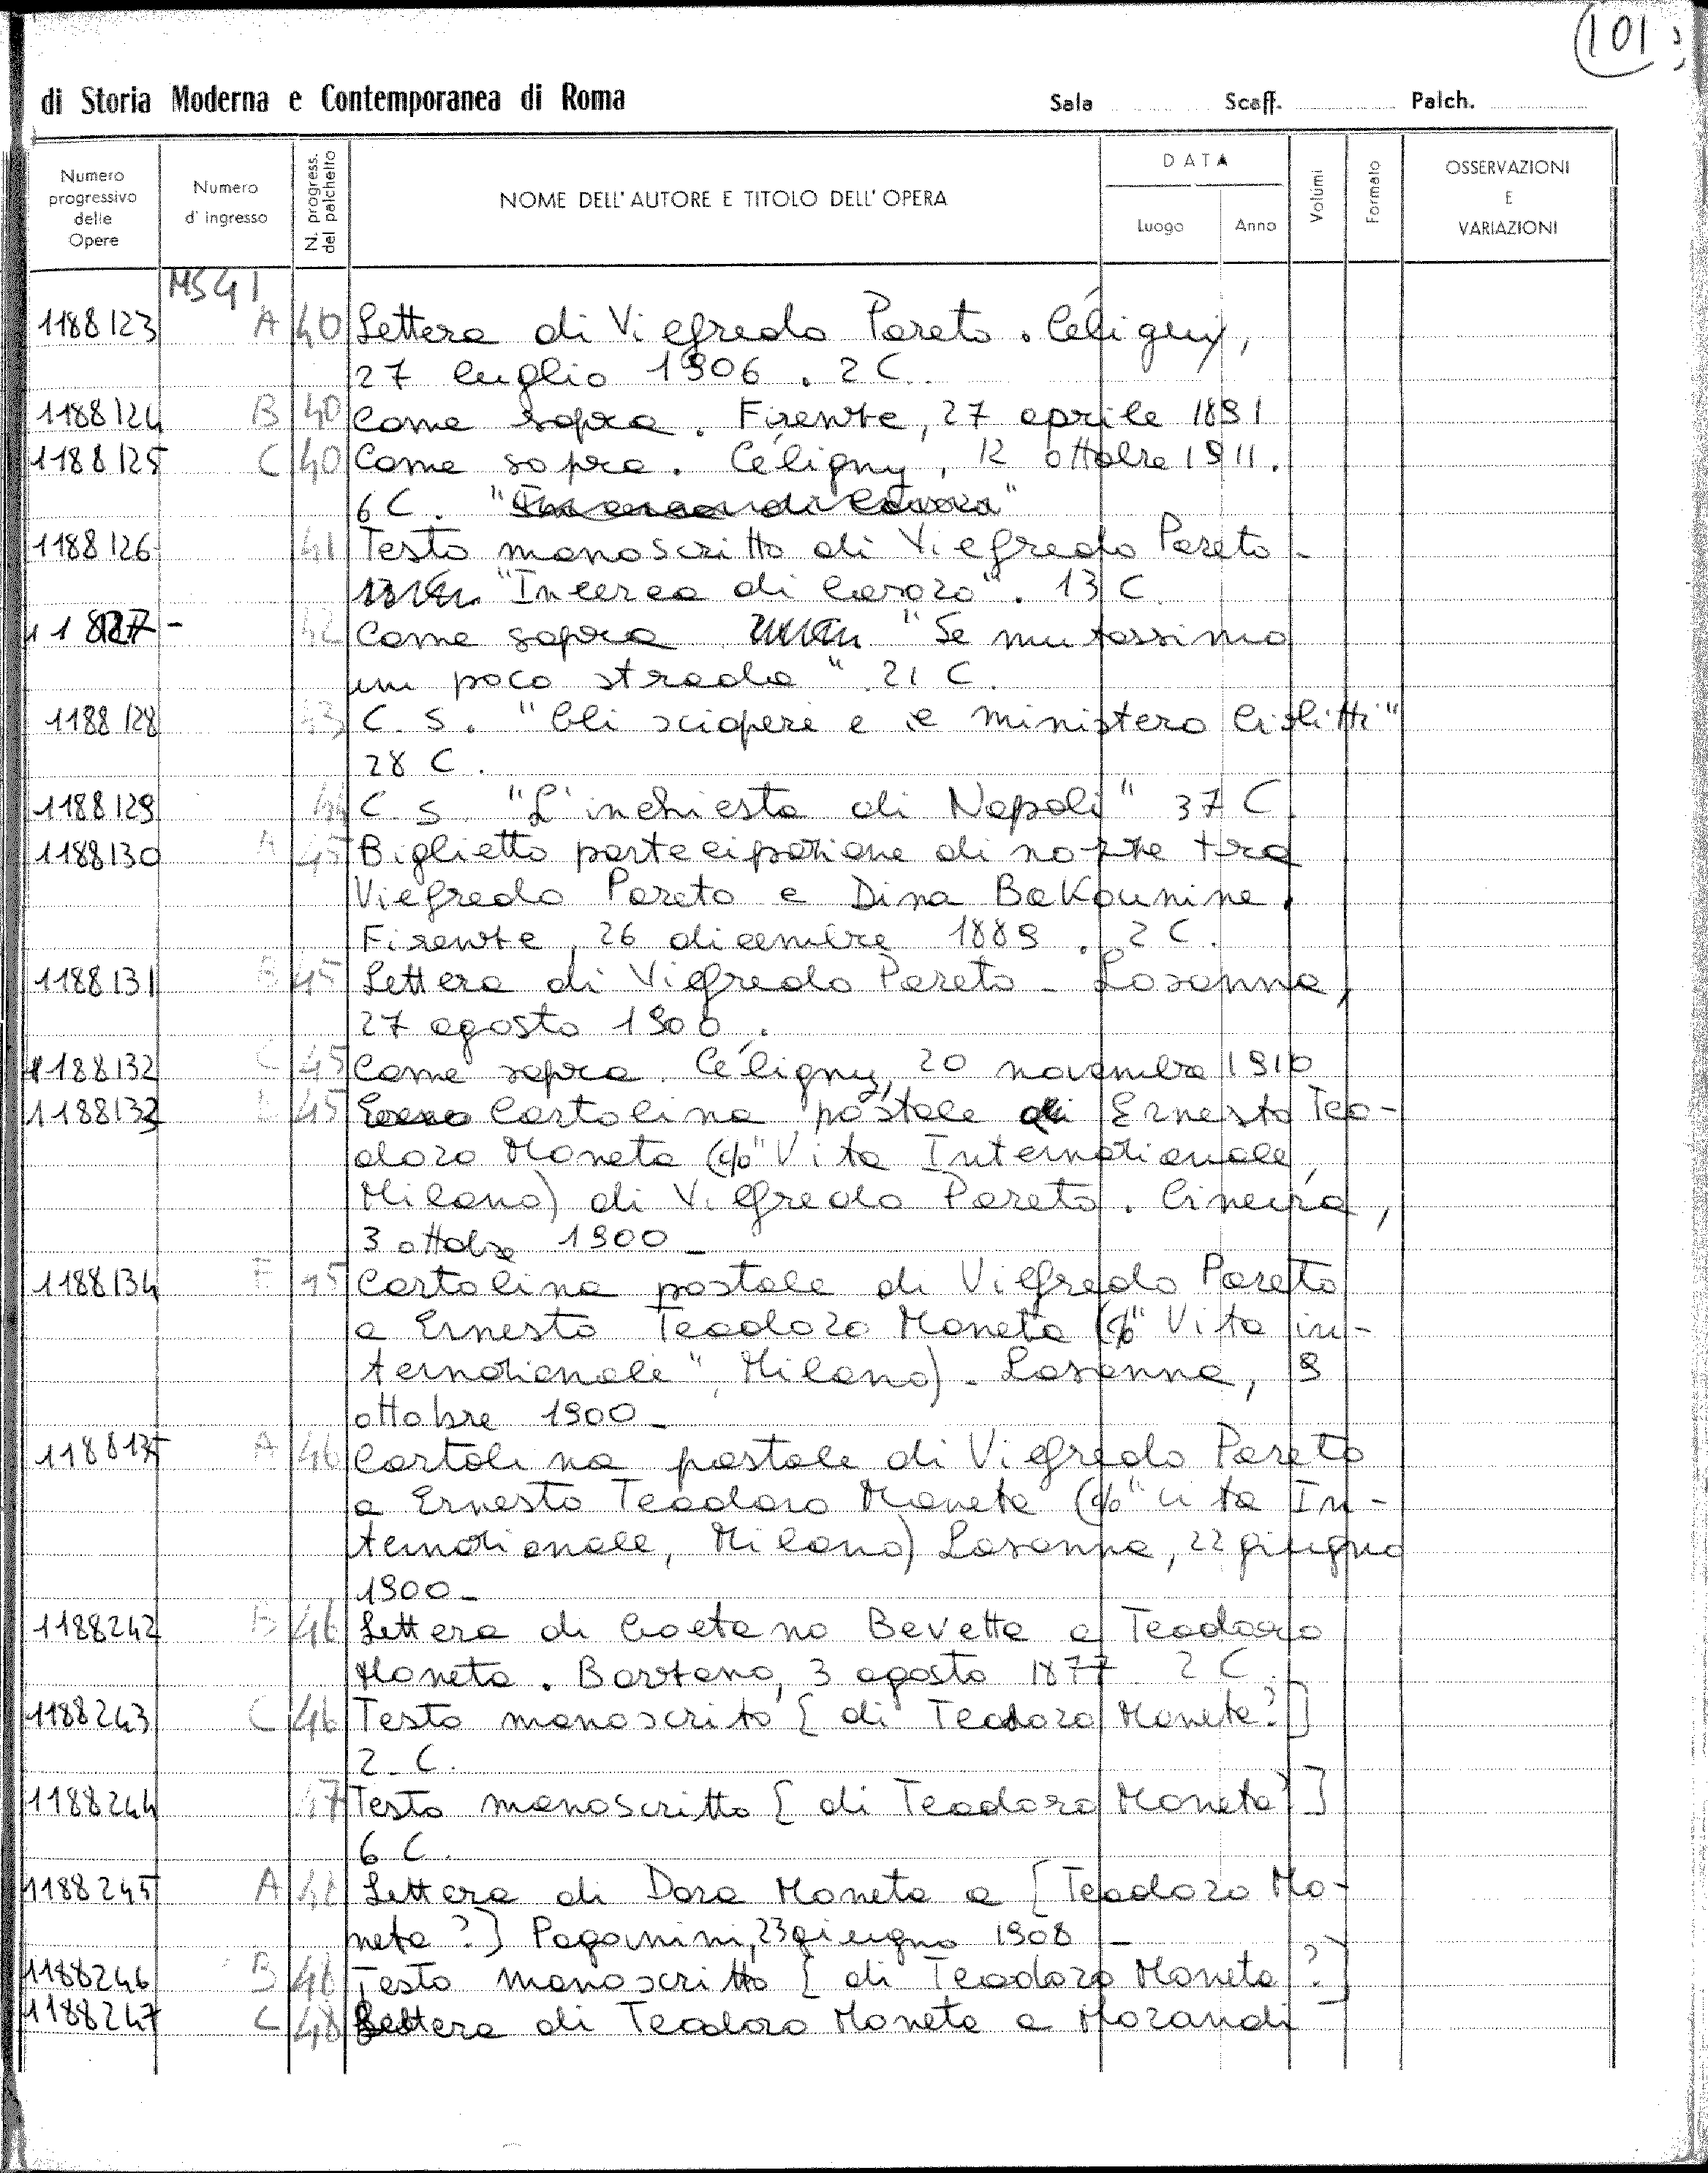 101
di Storia Moderna e Contemporanea di Roma Sala Scaff. Palch.
Numero progressivo delle Opere
Numero d'ingresso
N. progress. del palchetto
NOME DELL'AUTORE E TITOLO DELL'OPERA
DATA
Luogo
Anno
Volumi
Formato
OSSERVAZIONI E VARIAZIONI
MS 41
1188123 A 40 Lettera di Vilfredo Pareto. Céligny,
27 luglio 1906. 2 C.
1188124 B 40 Come sopra. Firenze, 27 aprile 1891
1188125 C 40 Come sopra. Céligny, 12 ottobre 1911.
6 C.
1188126 41 Testo manoscritto di Vilfredo Pareto -
"In cerca di lavoro". 13 C
118827- 42 Come sopra "Se mutassimo
un poco strada" 21 C.
1188128 43 C. S. "Gli scioperi e il ministero Giolitti"
28 C.
1188129 44 C S "L'inchiesta di Napoli" 37 C
1188130 A 45 Biglietto partecipazione di nozze tra
Vilfredo Pareto e Dina Bakounine.
Firenze, 26 dicembre 1889. 2 C.
1188131 B 45 Lettera di Vilfredo Pareto - Losanna,
27 agosto 1900.
1188132 C 45 Come sopra. Céligny, 20 novembre 1910
1188133 D 45 Cartolina postale di Ernesto Teo-
doro Moneta (c/o "Vita Internazionale,
Milano) di Vilfredo Pareto. Ginevra,
3 ottobre 1900 -
1188134 E 45 Cartolina postale di Vilfredo Pareto
a Ernesto Teodoro Moneta (c/o "Vita in-
ternazionale", Milano). Losanna, 9
ottobre 1900 -
1188135 A 46 Cartolina postale di Vilfredo Pareto
a Ernesto Teodoro Moneta (c/o "Vita In-
ternazionale, Milano) Losanna, 22 giugno
1900 -
1188242 B 46 Lettera di Gaetano Bevetta a Teodoro
Moneta. Barzanò, 3 agosto 1877 2 C.
1188243 C 46 Testo manoscrito [di Teodoro Moneta?]
2 C.
1188244 47 Testo manoscritto [di Teodoro Moneta?]
6 C.
1188245 A 48 Lettera di Dora Moneta a [Teodoro Mo-
neta?] Paganini, 23 giugno 1908 -
1188246 B 48 Testo manoscritto [di Teodoro Moneta?]
1188247 C 48 Lettera di Teodoro Moneta a Morandi